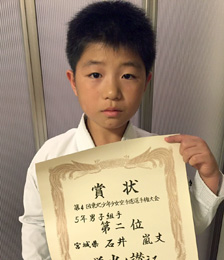 賞状
第4回東北少年少女空手道選手権大会
5年男子組手
第二位
宮城県 石井 嵐丈